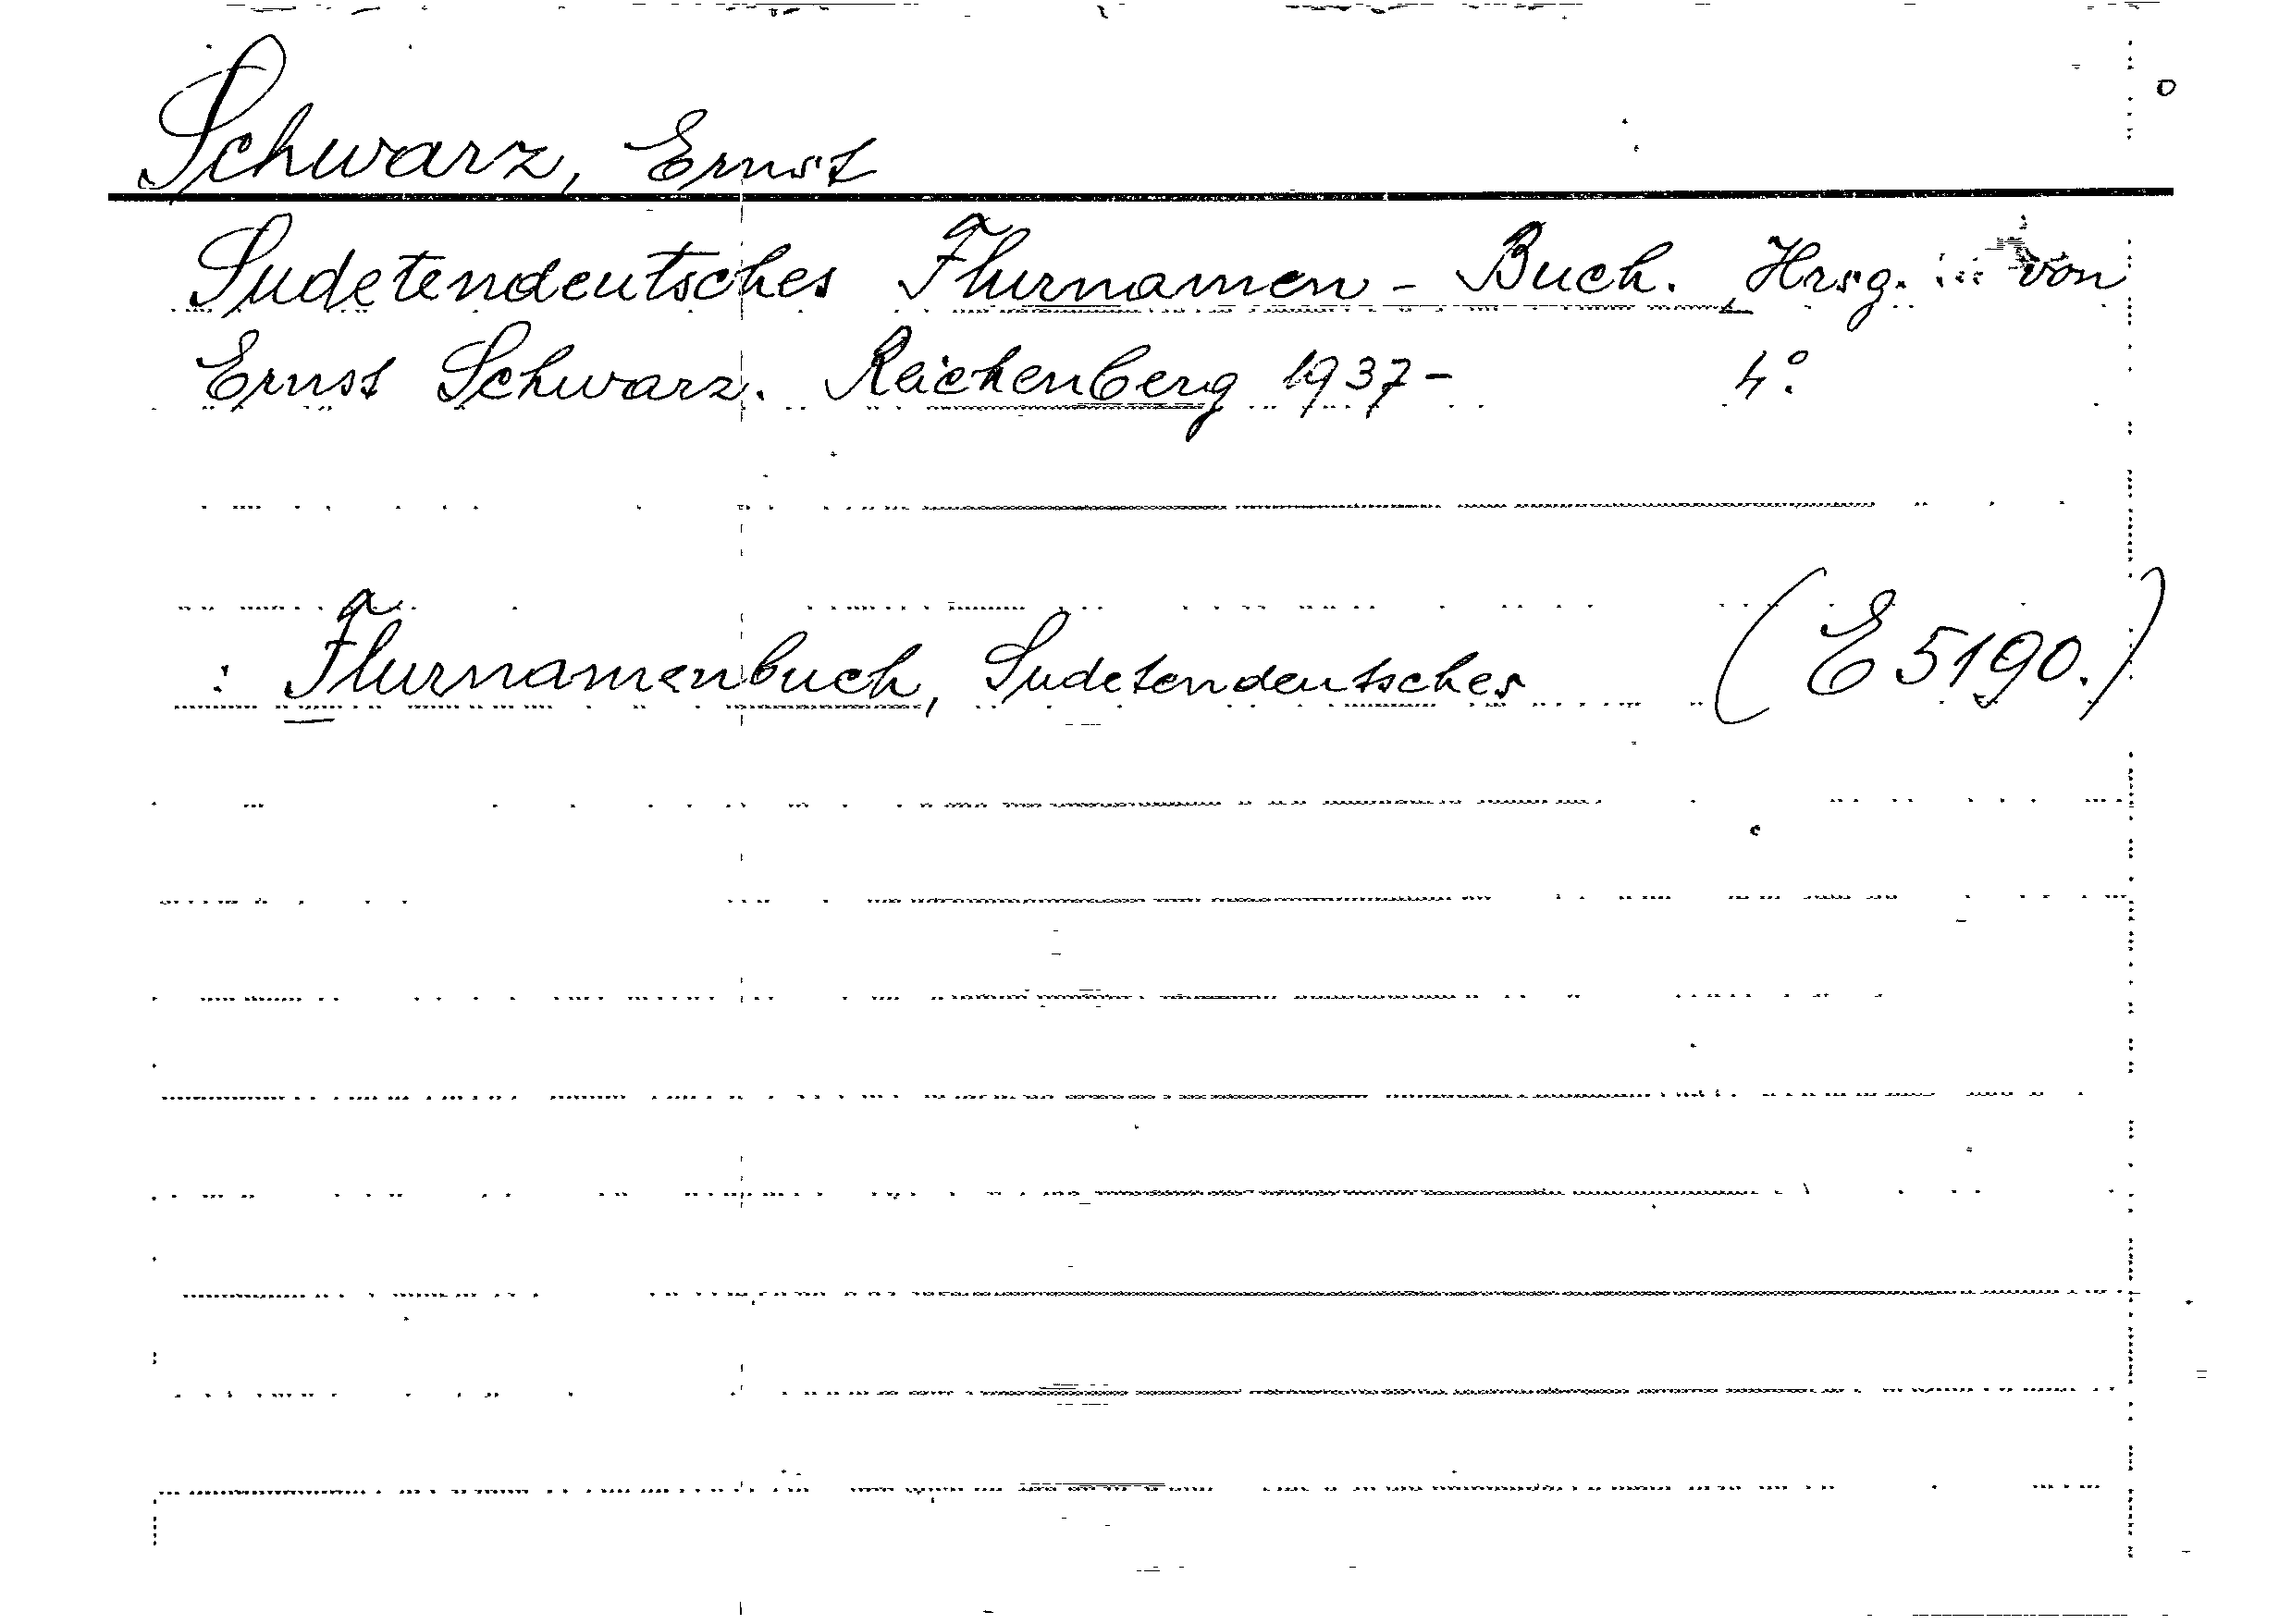 Schwarz, Ernst
Sudetendeutsches Flurnamen - Buch. Hrsg. ... von
Ernst Schwarz. Reichenberg 1937- 4°.
: Flurnamenbuch, Sudetendeutsches (E 5190.)